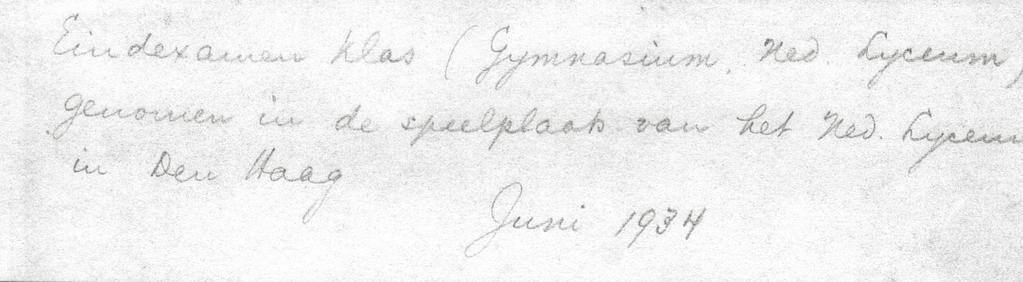 Eindexamen klas (Gymnasium, Ned. Lyceum)
genomen in de speelplaats van het Ned. Lyceum
in Den Haag
Juni 1934